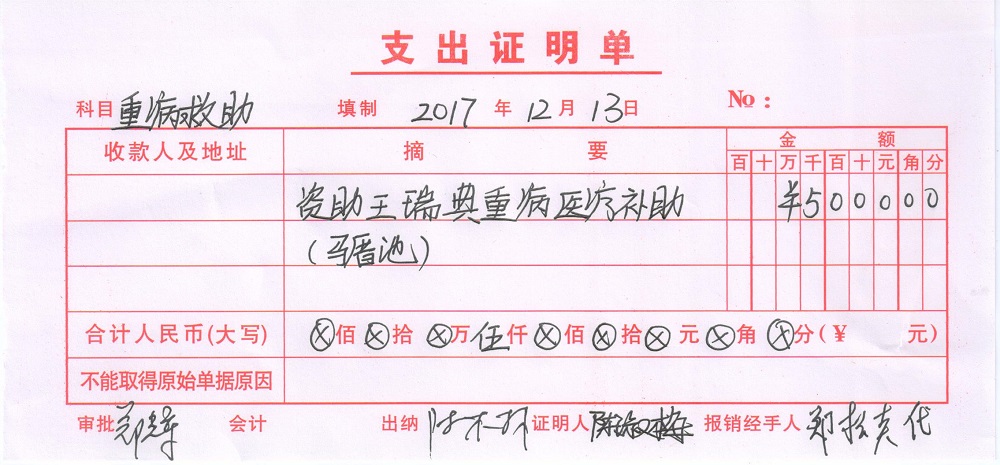 支出证明单
科目 重病救助 填制 2017 年 12 月 13 日 No：
收款人及地址 摘要 金额
百 十 万 千 百 十 元 角 分
资助王瑞典重病医疗补助 ¥500000
(马晋池)
合计人民币(大写) ⊗佰⊗拾⊗万伍仟⊗佰⊗拾⊗元⊗角⊗分(¥ 元)
不能取得原始单据原因
审批 会计 出纳 证明人 报销经手人